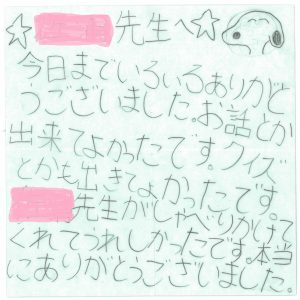 ☆ 先生へ☆
今日までいろいろありがと
うございました。お話とか
出来てよかったです。クイズ
とかも出きてよかったです。
先生がしゃべりかけて
くれてうれしかったです。本当
にありがとうございました。